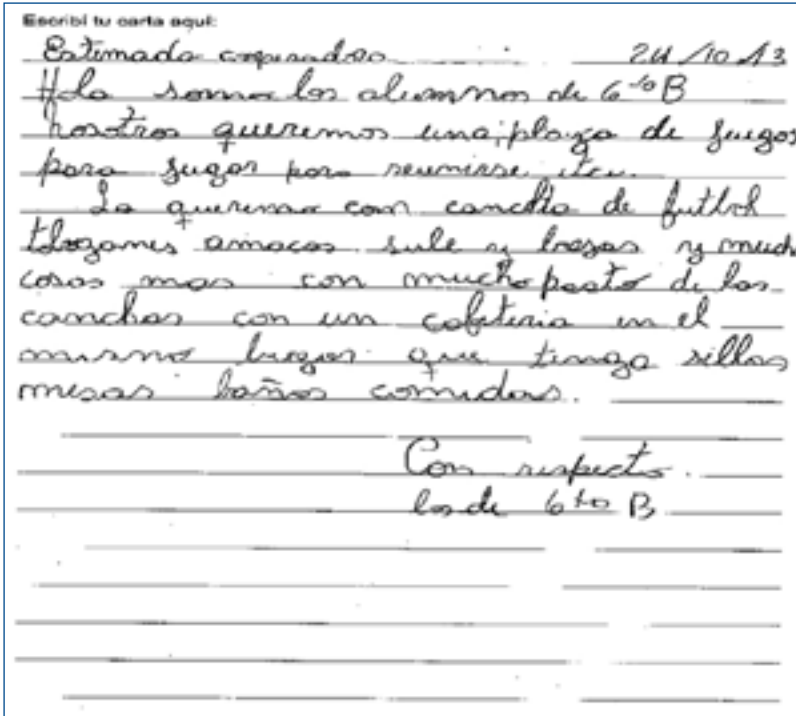 Escribí tu carta aquí:
Estimado 24/10/13
Hola somos los alumnos de 6to B
nosotros queremos una plaza de juegos
para jugar para reunirse etc.
La queremos con cancha de futbol
toboganes amacas sube y bajas y much
cosas mas con mucho pasto de las
canchas con un cafeteria en el
mismo lugar que tenga sillas
mesas baños comidas.
Con respecto.
los de 6to B